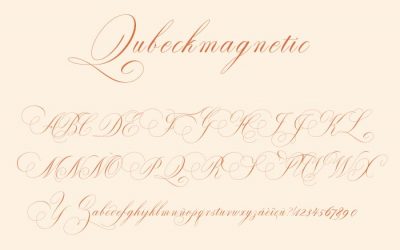 Qubeckmagnetic
ABCDEFGHIJKL
MNÑOPQRSTUWX
YZabcdefghyklmnñopqrstuwxyzáéíóú?!1234567890